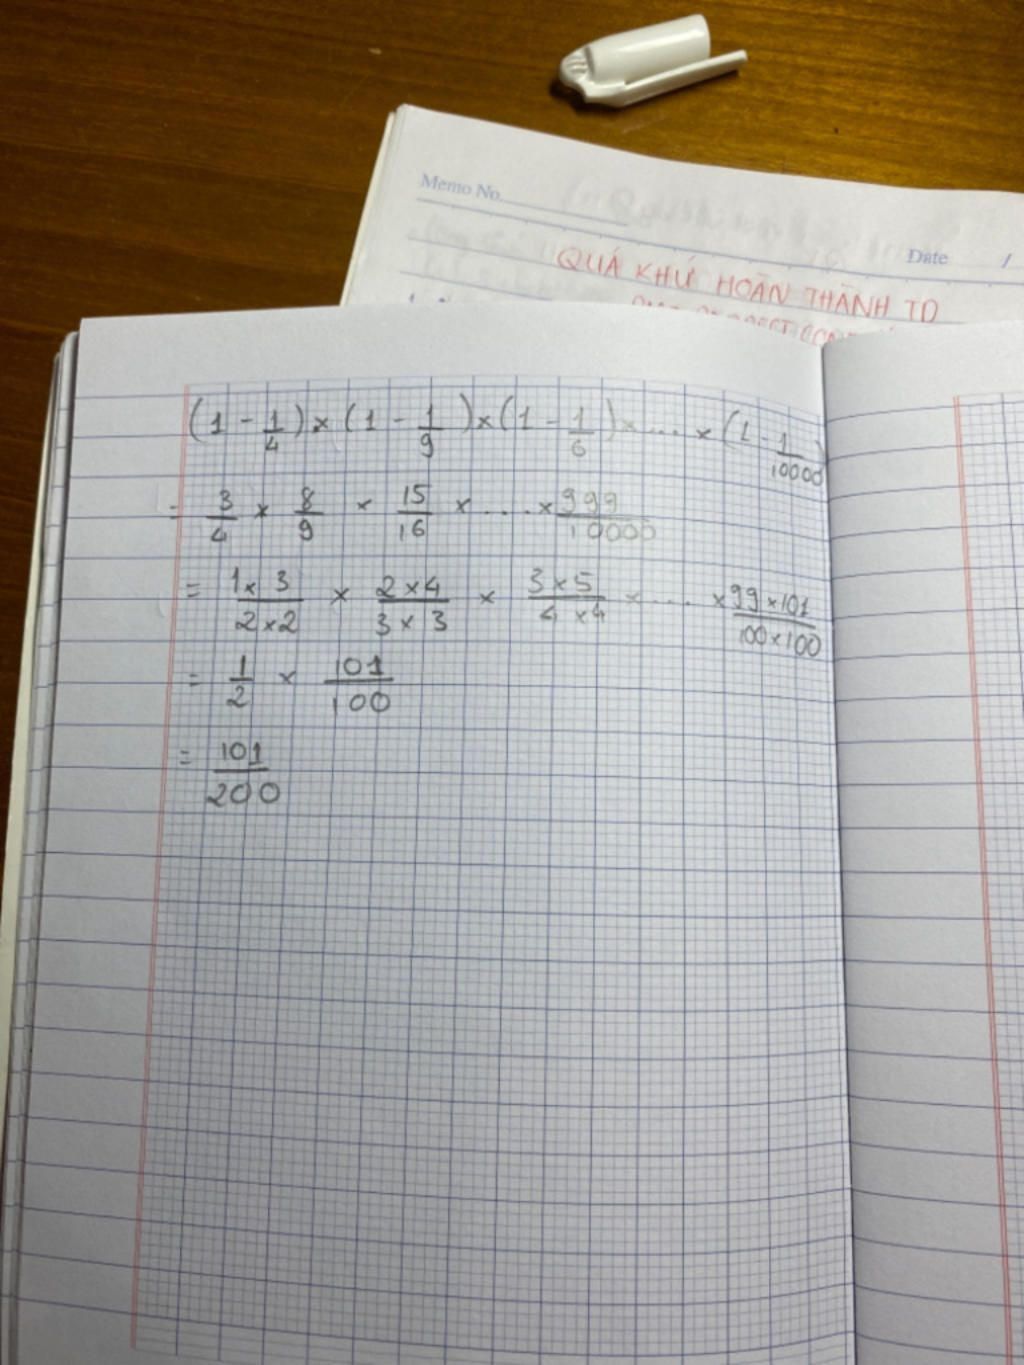 Memo No.
Date /
QUÁ KHỨ HOÀN THÀNH TD
(1 - 1/4) × (1 - 1/9) × (1 - 1/6) × .... × (1 - 1/10000)
= 3/4 × 8/9 × 15/16 × .... × 999/10000
= 1×3/2×2 × 2×4/3×3 × 3×5/4×4 × .... × 99×101/100×100
= 1/2 × 101/100
= 101/200